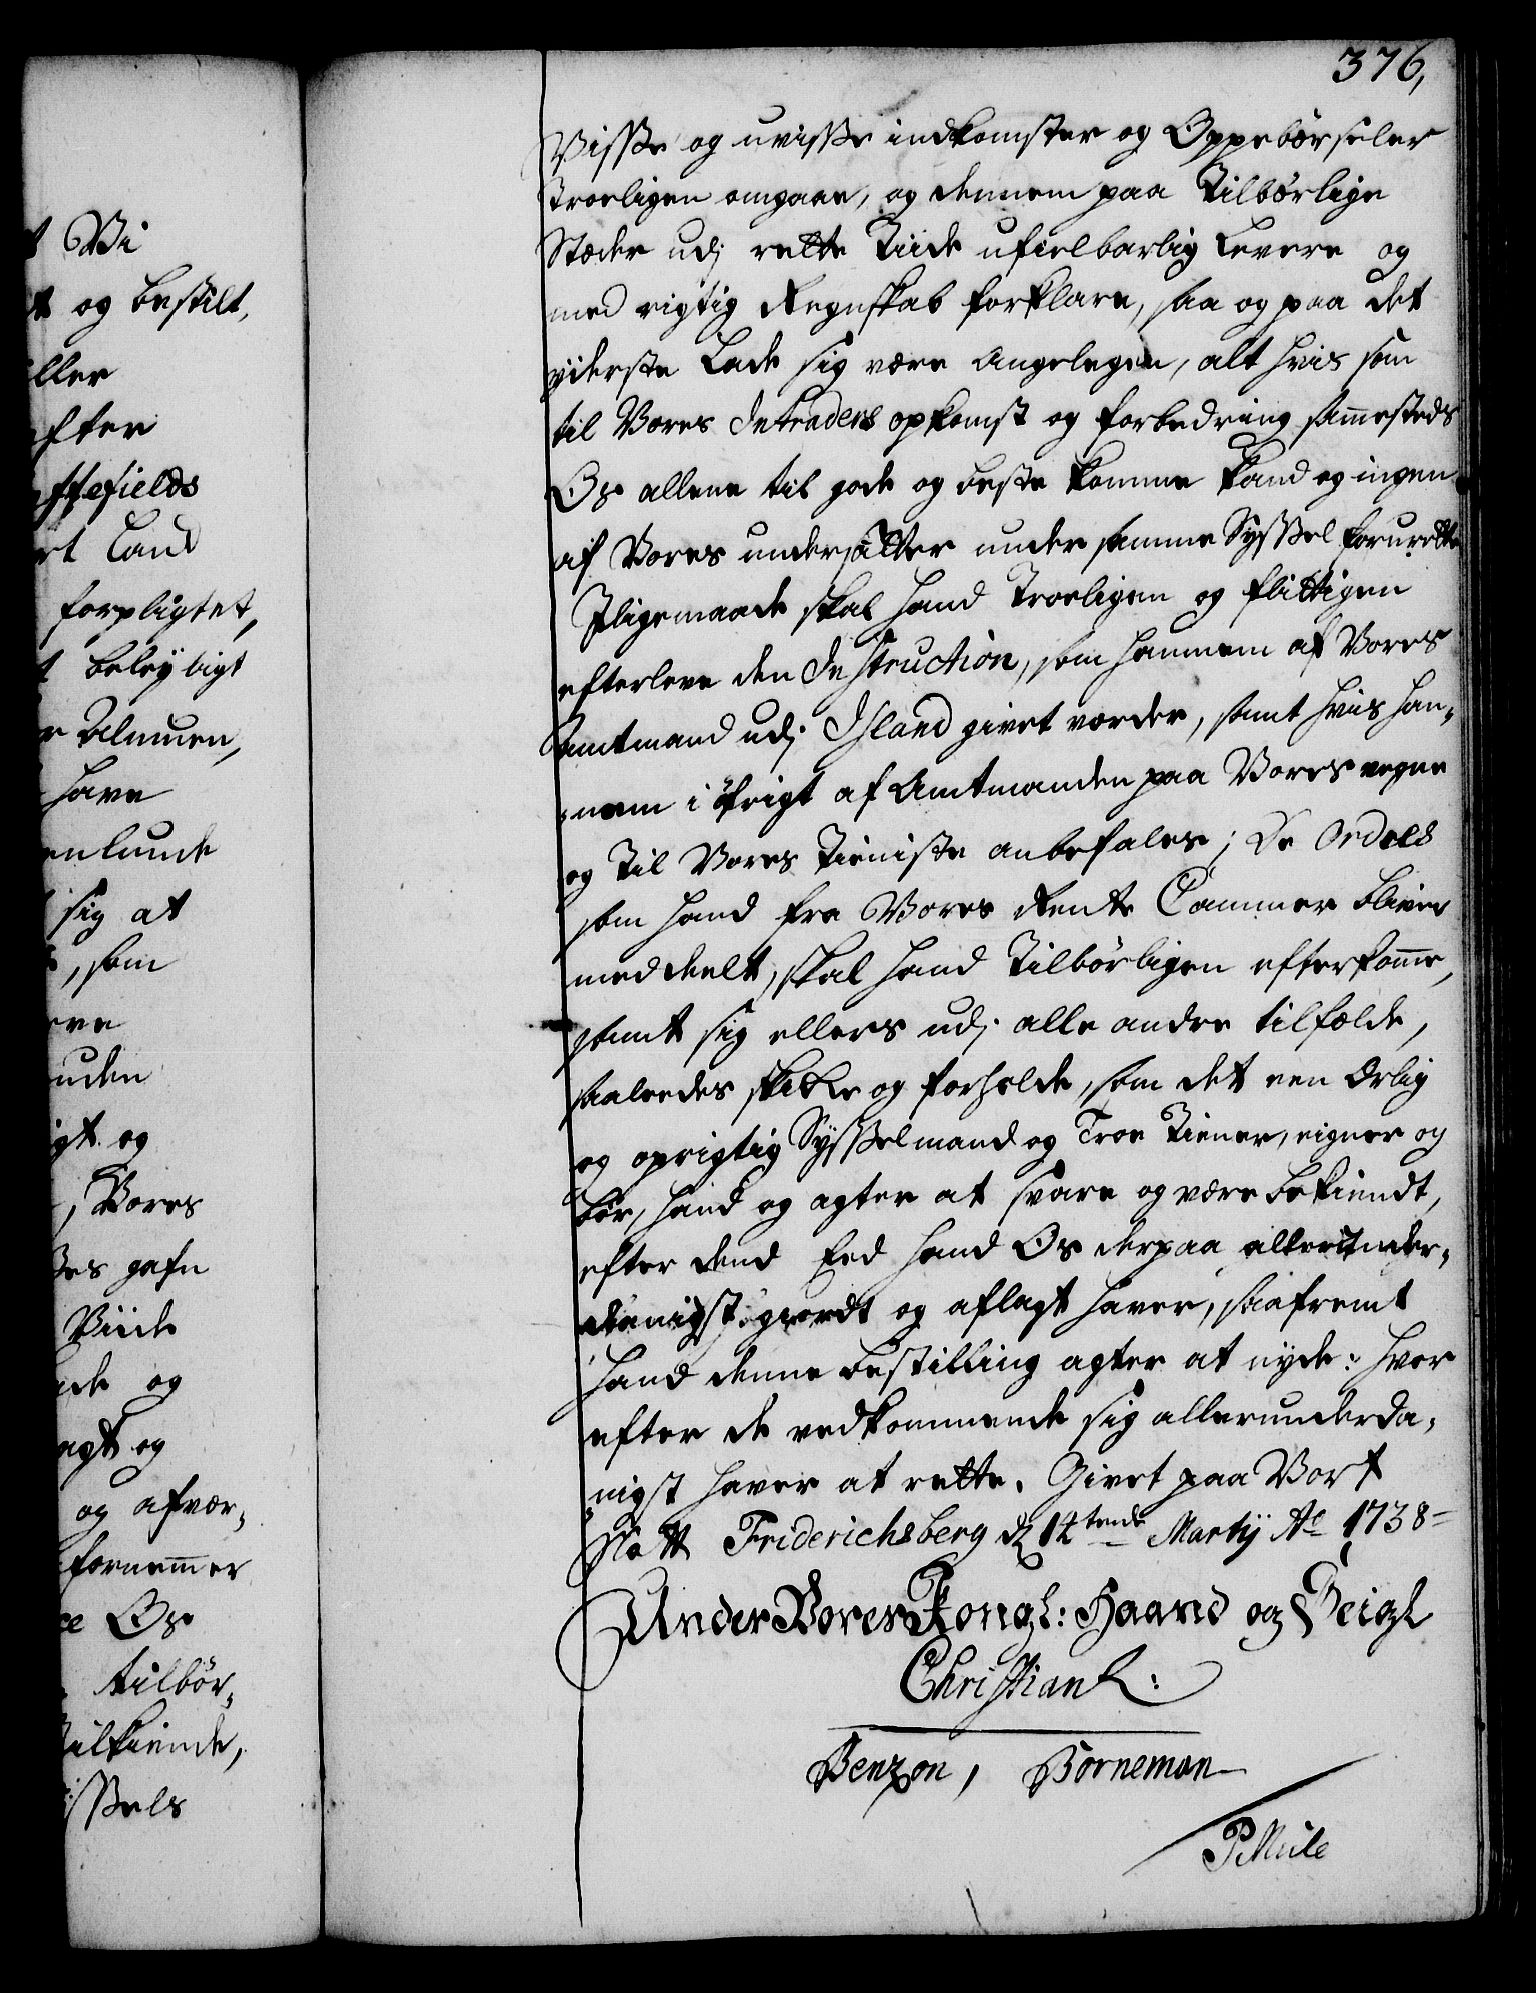 376,
Visse og uvisse indkomster og Oppebörseler
Troeligen omgaae, og dennem paa Tilbörlige
Stæder udj rette Tiide ufeilbarlig Levere og
med rigtig Regnskab forklare, saa og paa det
yderste Lade sig være Angelegen, alt hvis som
til Vores Intraders opkomst og forbedring sammesteds
Os allene til gode og beste komme kand og ingen
af Vores undersätter under samme Syssel forurette
Iligemaade skal hand Troeligen og flittigen
efterleve den Instruction, som hannem af Vores
Amtmand udj Island givet vorder, samt hvis han-
nem i öfrigt af Amtmanden paa Vores vegne
og Til Vores Tieniste anbefales; De Ordres
som hand fra Vores Rente Cammer bliver
meddeelt, skal hand Tilbörligen efterkomme,
samt sig ellers udj alle andre tilfælde,
saaledes skikke og forholde, som det een Ærlig
og oprigtig Sysselmand og Troe Tiener, eigner og
bör, hand og agter at svare og være bekiendt,
efter dend Eed hand Os derpaa allerunder-
danigst giordt og aflagt haver, saafremt
hand denne bestilling agter at nyde: hvor
efter de vedkommende sig allerunderda-
nigst haver at rette. Givet paa Vort
Slott Friderichsberg d 14tende Martij Ao 1738
Under Vores Kongl: Haand og Seigl
Christian R:
Benzon, Borneman
P Mule
t Vi
og bestilt,
ller
efter
efields
rt Land
forpligtet,
t beleyligt
r Almuen,
have
enlunde
sig at
, som
ere
uden
igt og
, Vores
es gafn
Viide
de og
agt og
og afvær-
fornemmer
Os
tilbör-
tilkiende,
issels